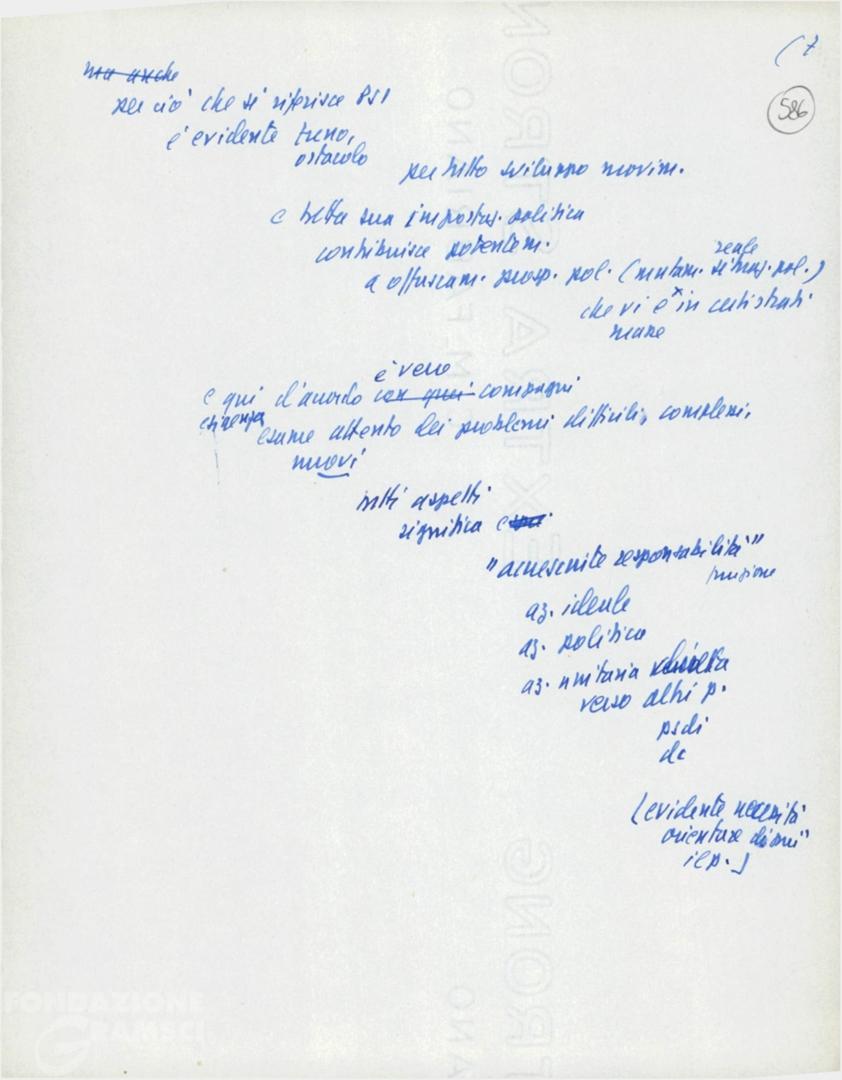 (7
586
ma anche
per ciò che si riferisce PSI
è evidente freno,
ostacolo
per tutto sviluppo movim.
e tutta sua impostaz. politica
contribuisce potentem.
a offuscam. prosp. pol. (mutam. reale situaz. pol.)
che vi è in certi strati
masse
è vero
e qui d'accordo con qui compagni
esigenza
esame attento dei problemi difficili, complessi,
nuovi
tutti aspetti
significa
"accresciuta responsabilità"
funzione
az. ideale
az. politica
az. unitaria
verso altri p.
psdi
dc
(evidente necessità
orientare
il p.)
FONDAZIONE
GRAMSCI